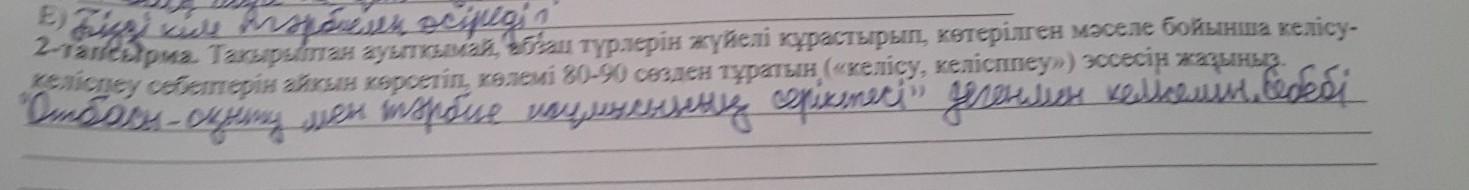 Е) Бізді кім тәрбиелеп өсіреді?
2-тапсырма. Тақырыптан ауытқымай, абзац түрлерін жүйелі құрастырып, көтерілген мәселе бойынша келісу-
келіспеу себептерін айқын көрсетіп, көлемі 80-90 сөзден тұратын («келісу, келісппеу») эссесін жазыңыз.
"Отбасы-оқыту мен тәрбие серіктесі" дегенмен келісемін, себебі